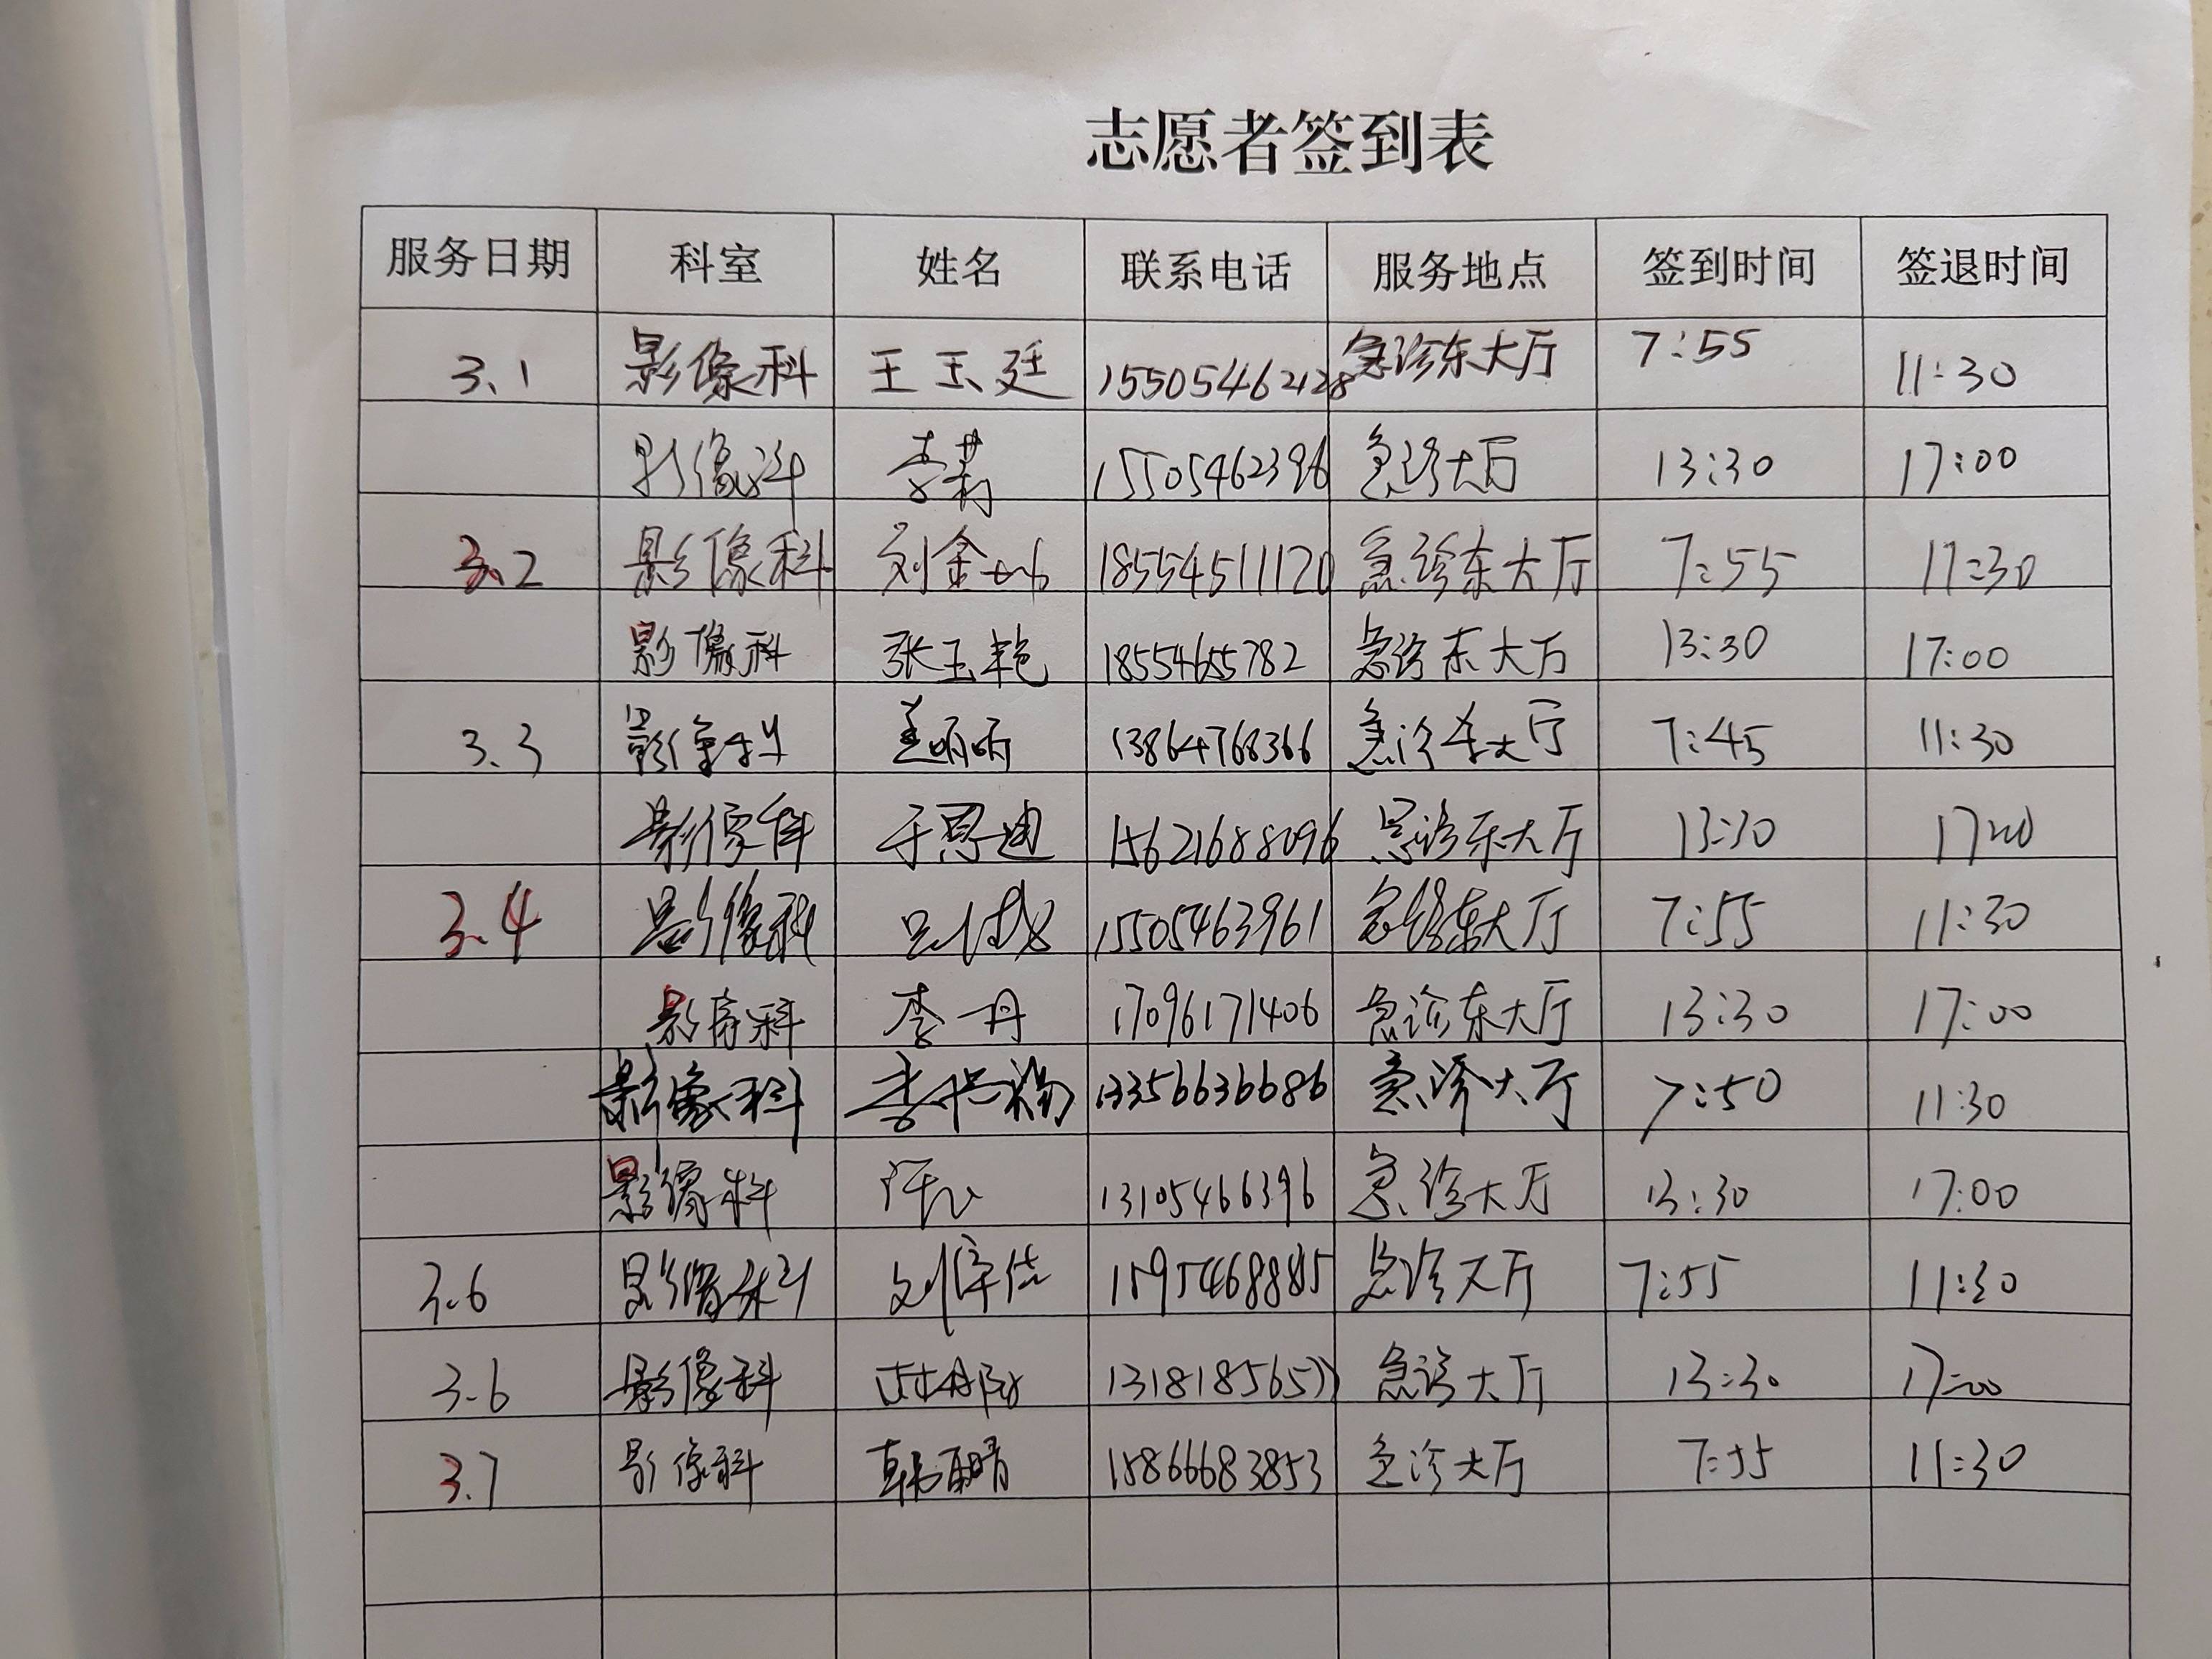 志愿者签到表
服务日期 科室 姓名 联系电话 服务地点 签到时间 签退时间
3.1 影像科 王玉廷 15505462128 急诊东大厅 7:55 11:30
影像科 李莉 15505462396 急诊大厅 13:30 17:00
3.2 影像科 刘金 18554511120 急诊东大厅 7:55 11:30
影像科 张玉艳 18554655782 急诊东大厅 13:30 17:00
3.3 影像科 姜丽丽 13864768366 急诊东大厅 7:45 11:30
影像科 于恩迪 15621688096 急诊东大厅 13:30 17:00
3.4 影像科 15505463961 急诊东大厅 7:55 11:30
影像科 李丹 17096171406 急诊东大厅 13:30 17:00
影像科 李 13356636686 急诊大厅 7:50 11:30
影像科 13105466396 急诊大厅 13:30 17:00
3.6 影像科 刘 急诊大厅 7:55 11:30
3.6 影像科 13181856577 急诊大厅 13:30 17:00
3.7 影像科 韩晴 15866683853 急诊大厅 7:55 11:30